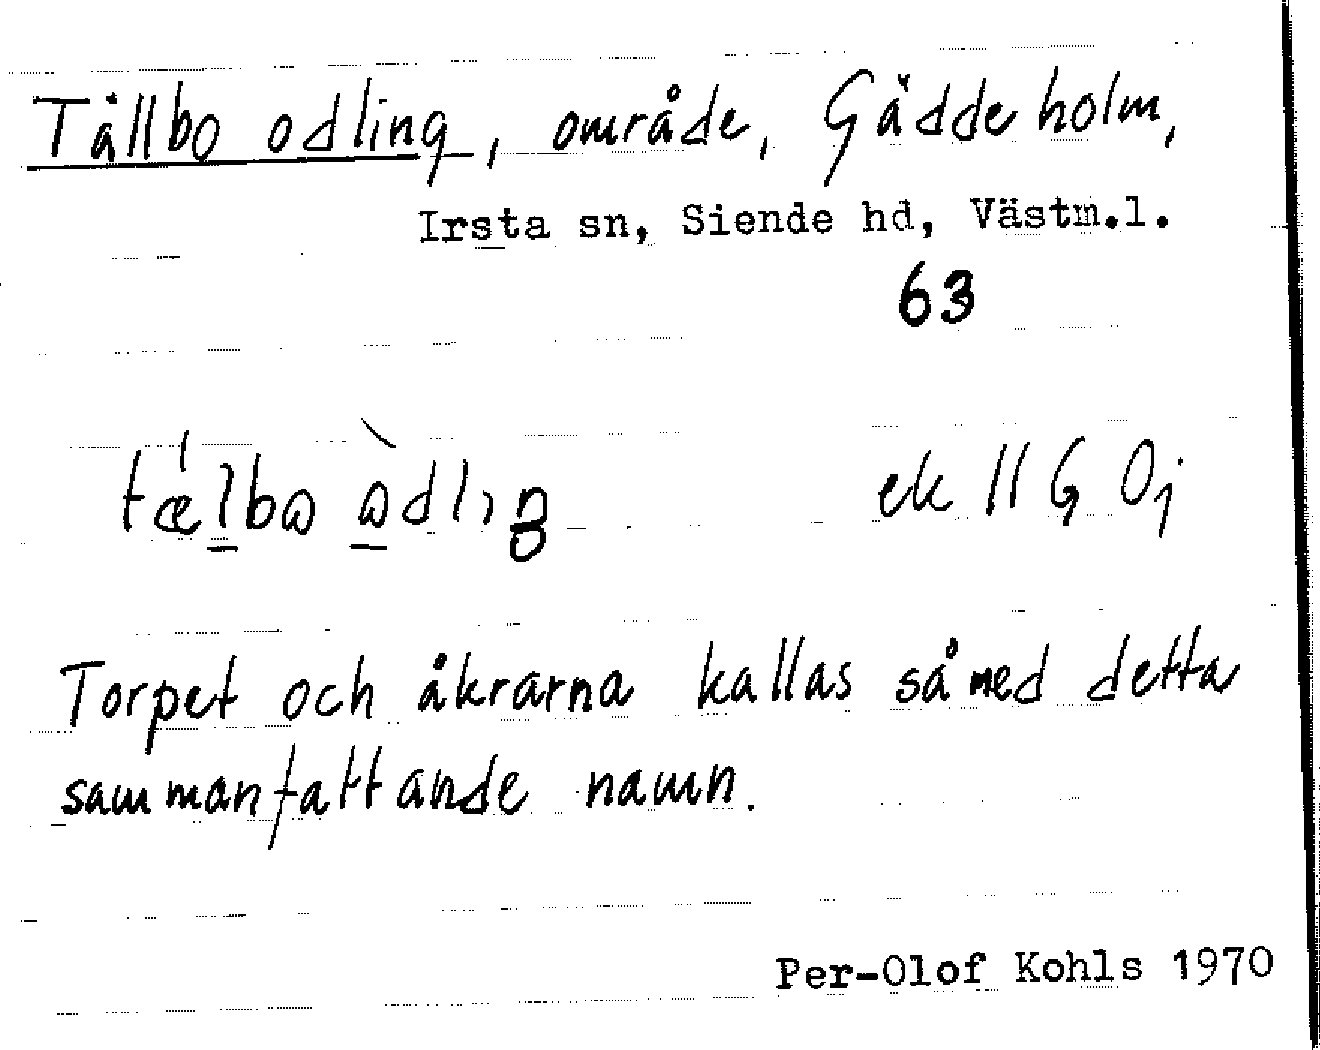 Tällbo odling, område, Gäddeholm,
Irsta sn, Siende hd, Västm.l.
63
ek 11 G Oj
Torpet och åkrarna kallas så med detta
sammanfattande namn.
Per-Olof Kohls 1970